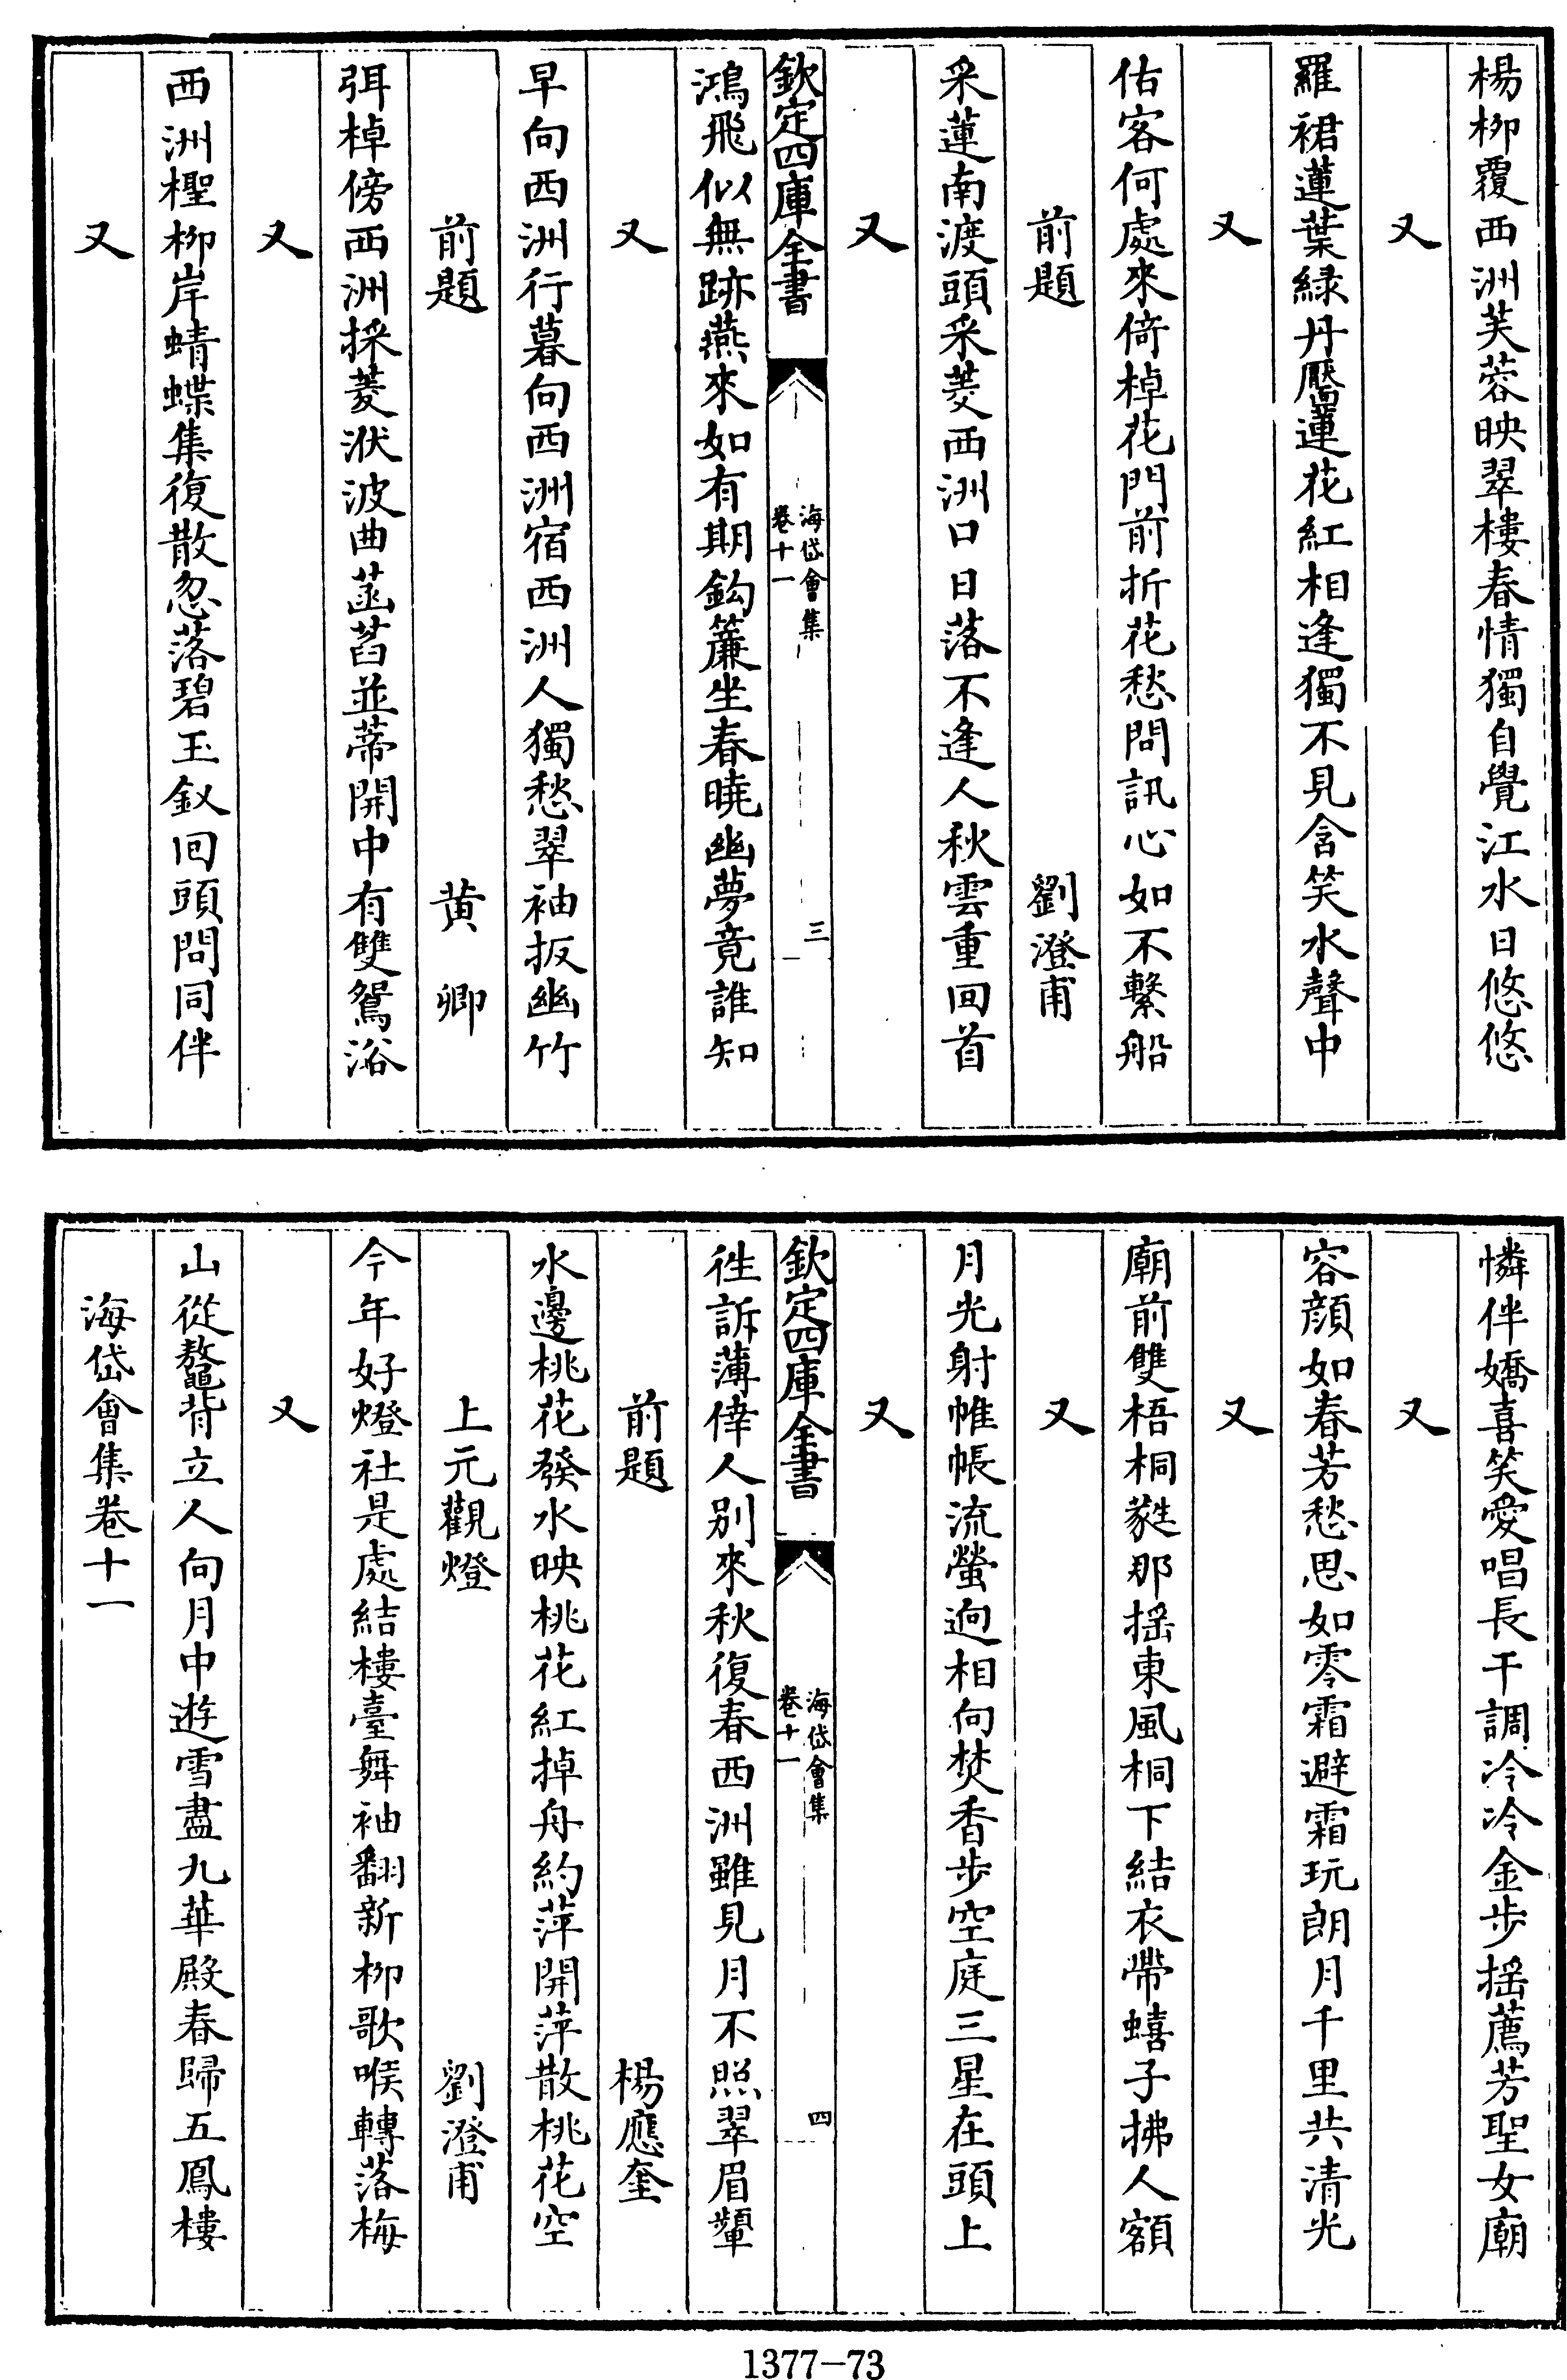 楊栁覆西洲芙蓉映翠樓春情獨自覺江水日悠悠
又
羅裙蓮葉緑丹靨蓮花紅相逢獨不見含笑水聲中
又
估客何處來倚棹花門前折花愁問訊心如不繫船
前題 劉澄甫
采蓮南渡頭采菱西洲口日落不逢人秋雲重回首
又
欽定四庫全書 海岱會集 卷十一 三
鴻飛似無跡燕來如有期鈎簾坐春曉幽夢竟誰知
又
早向西洲行暮向西洲宿西洲人獨愁翠袖扳幽竹
前題 黄卿
弭棹傍西洲採菱洑波曲菡萏並蒂開中有雙鴛浴
又
西洲檉栁岸蜻蝶集復散忽落碧玉釵回頭問同伴
又
憐伴嬌喜笑愛唱長干調冷冷金步揺薦芳聖女廟
又
容顔如春芳愁思如零霜避霜玩朗月千里共清光
又
廟前雙梧桐蕤那揺東風桐下結衣帶蟢子拂人額
又
月光射帷帳流螢逈相向焚香步空庭三星在頭上
又
欽定四庫全書 海岱會集 卷十一 四
徃訴薄倖人别來秋復春西洲雖見月不照翠眉顰
前題 楊應奎
水邊桃花發水映桃花紅掉舟約萍開萍散桃花空
上元觀燈 劉澄甫
今年好燈社是處結樓臺舞袖翻新栁歌喉轉落梅
又
山從鼇背立人向月中遊雪盡九華殿春歸五鳳樓
海岱會集卷十一
1377-73